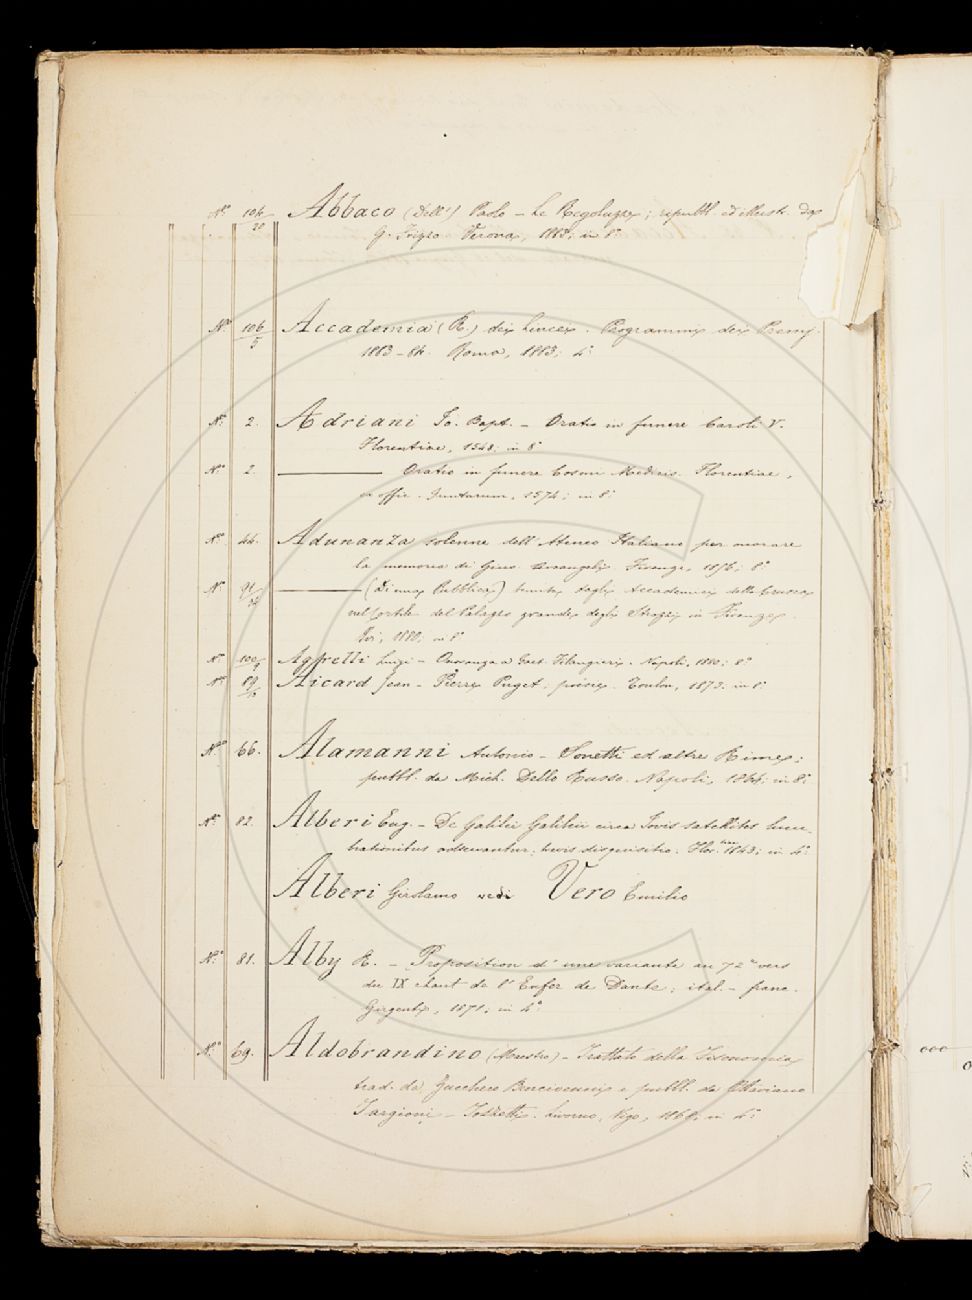 N.° 104/20 Abbaco (Dell') Paolo – Le Regoluzze; repubbl. ed illustr. da
G. Frizzo Verona, 1883; in 8.°
N.° 106/5 Accademia (R.) dei Lincei. Programmi dei Premj.
1883–84. Roma, 1883; 4.°
N.° 2. Adriani Jo. Bapt. – Oratio in funere Caroli V.
Florentiae, 1548; in 8.°
N.° 2. Oratio in funere Cosmi Medicis. Florentiae,
in offic. Juntarum, 1574; in 8.°
N.° 44. Adunanza solenne dell'Ateneo Italiano per onorare
la memoria di Firenze, 1876; 8.°
N.° (Di una Pubblica) tenuta dagli Accademici della Crusca
nel Cortile del Palagio grande degli Strozzi in Firenze.
Ivi, 1880; in 8.°
N.° 100/9 Agfrelli Luigi – Onoranza a Gaet. Filangieri. Napoli, 1880; 8.°
N.° 89/6 Aicard Jean – Pierre Puget, poësie. Toulon, 1873. in 8.°
N.° 66. Alamanni Antonio – Sonetti ed altre Rime;
pubbl. da Mich. Dello Russo. Napoli, 1866; in 8.°
N.° 82. Alberi Eug. – De Galilei Galileii circa Jovis satellites lucu-
brationibus brevis disquisitio. Flor. 1843; in 4.°
Alberi Girolamo vedi Vero Emilio
N.° 81. Alby R. – Proposition d'une variante au 72.e vers
du IX chant de l'Enfer de Dante; ital. – franc.
Girgenti, 1871; in 4.°
N.° 69. Aldobrandino (Mastro) – Trattato della Fisonomia
trad. da Zucchero Bencivenni e pubbl. da Ottaviano
Targioni – Tozzetti. Livorno, Vigo, 1868; in 4.°